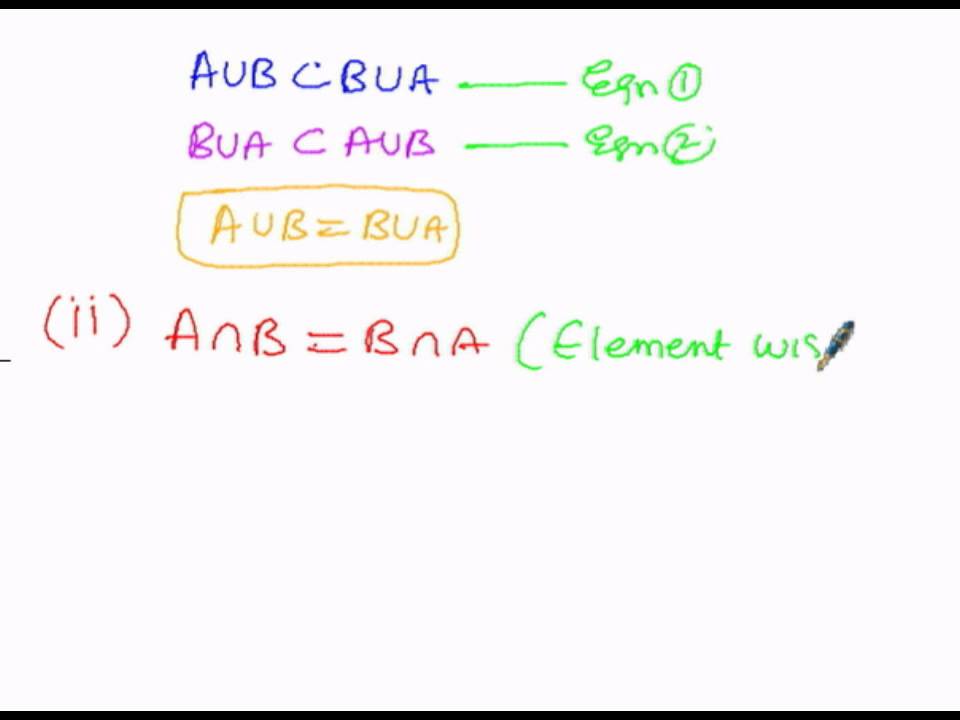 A∪B ⊂ B∪A —— Eqn ①
B∪A ⊂ A∪B —— Eqn ②
A∪B = B∪A
(ii) A∩B = B∩A (Element wis